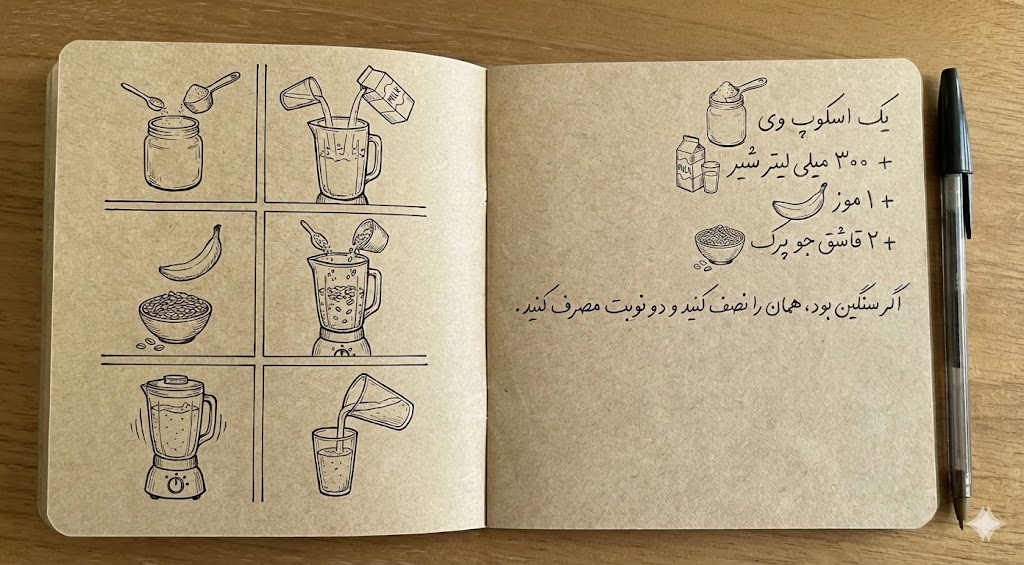 MILK
یک اسکوپ وی
+ ۳۰۰ میلی لیتر شیر
MILK
+ ۱ موز
+ ۲ قاشق جو پرک
اگر سنگین بود، همان را نصف کنید و دو نوبت مصرف کنید.